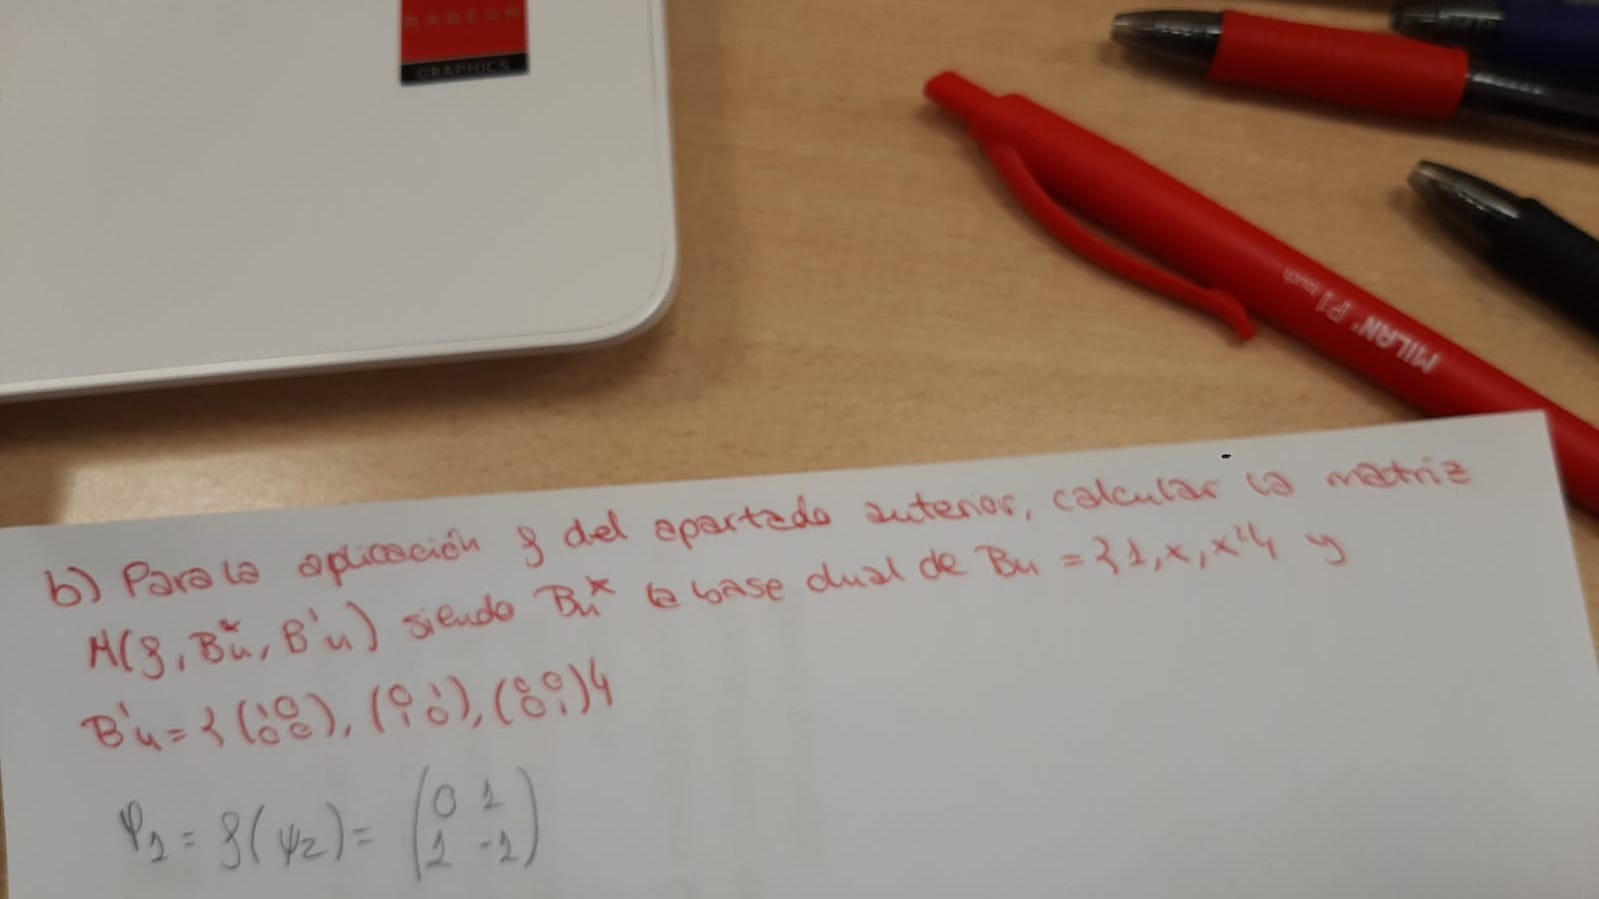 RADEON
GRAPHICS
MILAN P1 touch
b) Para la aplicación f del apartado anterior, calcular la matriz
M(f, Bu*, B'u) siendo Bu* la base dual de Bu = {1, x, x²} y
B'u = {(1 0 / 0 0), (0 1 / 1 0), (0 0 / 0 1)}
φ1 = f(ψ2) = (0 1 / 1 -1)